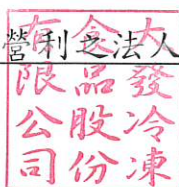 營利之法人
大發冷凍
食品股份
有限公司